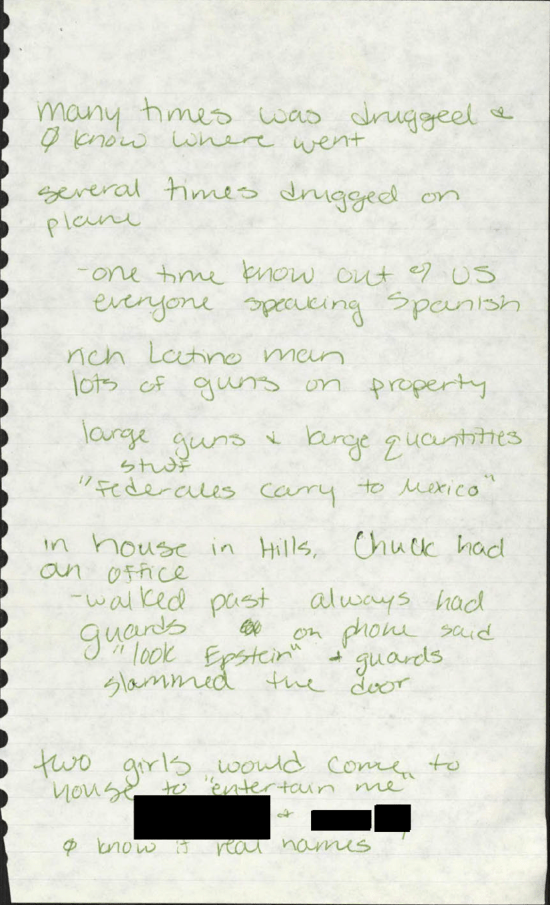 many times was drugged &
Ø know where went
several times drugged on
plane
-one time know out of US
everyone speaking Spanish
rich Latino man
lots of guns on property
large guns & large quantities
stuff
"Federales carry to Mexico"
in house in Hills, Chuck had
an office
-walked past always had
guards on phone said
"look Epstein" + guards
slammed the door
two girls would come to
house to "entertain me"
&
Ø know if real names